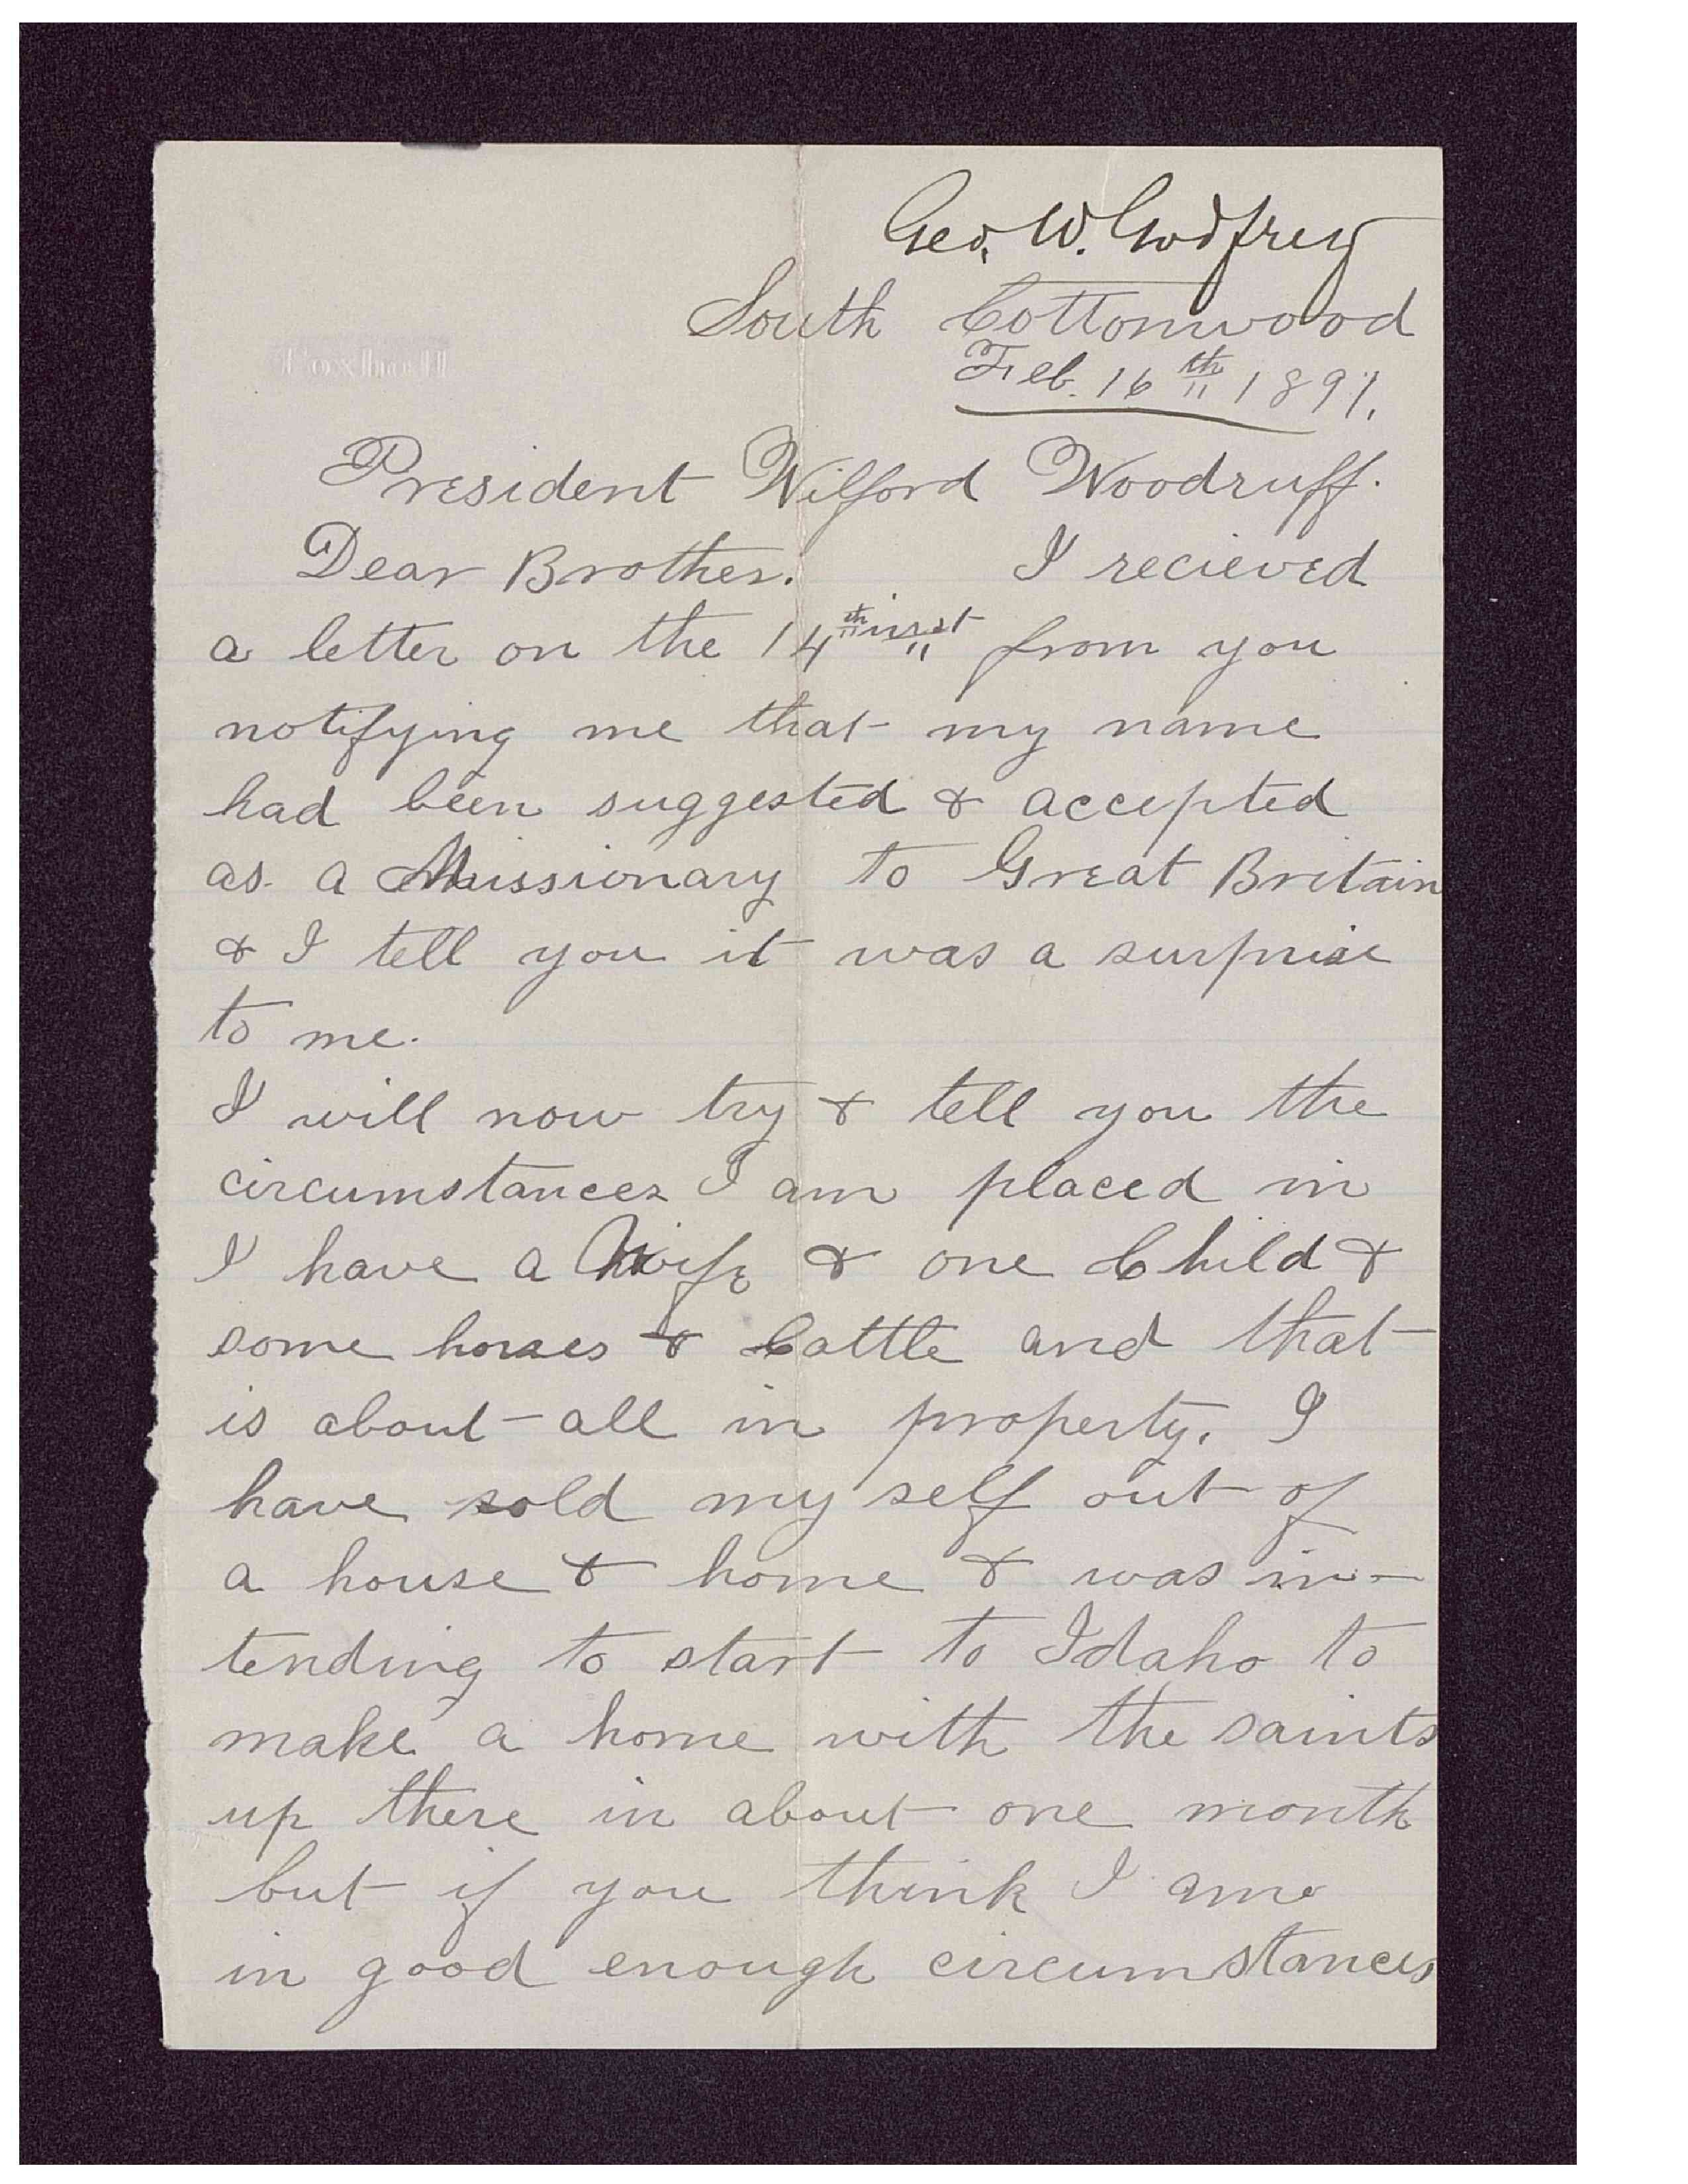 Geo. W. Godfrey
South Cottonwood
Feb. 16th 1891.
President Wilford Woodruff.
Dear Brother. I recieved
a letter on the 14th inst from you
notifying me that my name
had been suggested & accepted
as a Missionary to Great Britain
& I tell you it was a surprise
to me.
I will now try & tell you the
circumstances I am placed in
I have a Wife & one Child &
some horses & Cattle and that
is about all in property. I
have sold my self out of
a house & home & was in-
tending to start to Idaho to
make a home with the saints
up there in about one month
but if you think I am
in good enough circumstances